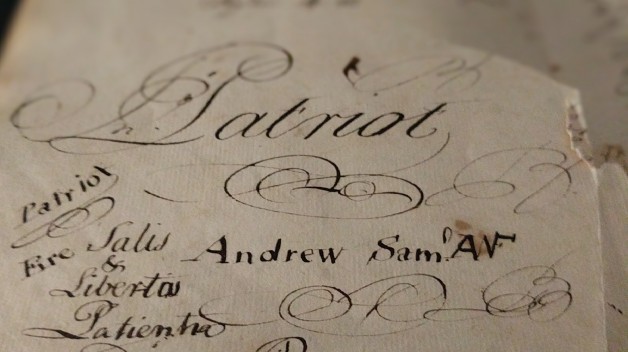 Patriot
Patriot
Fire Salis Andrew Sam.l AF
&
Libertas
Patientia